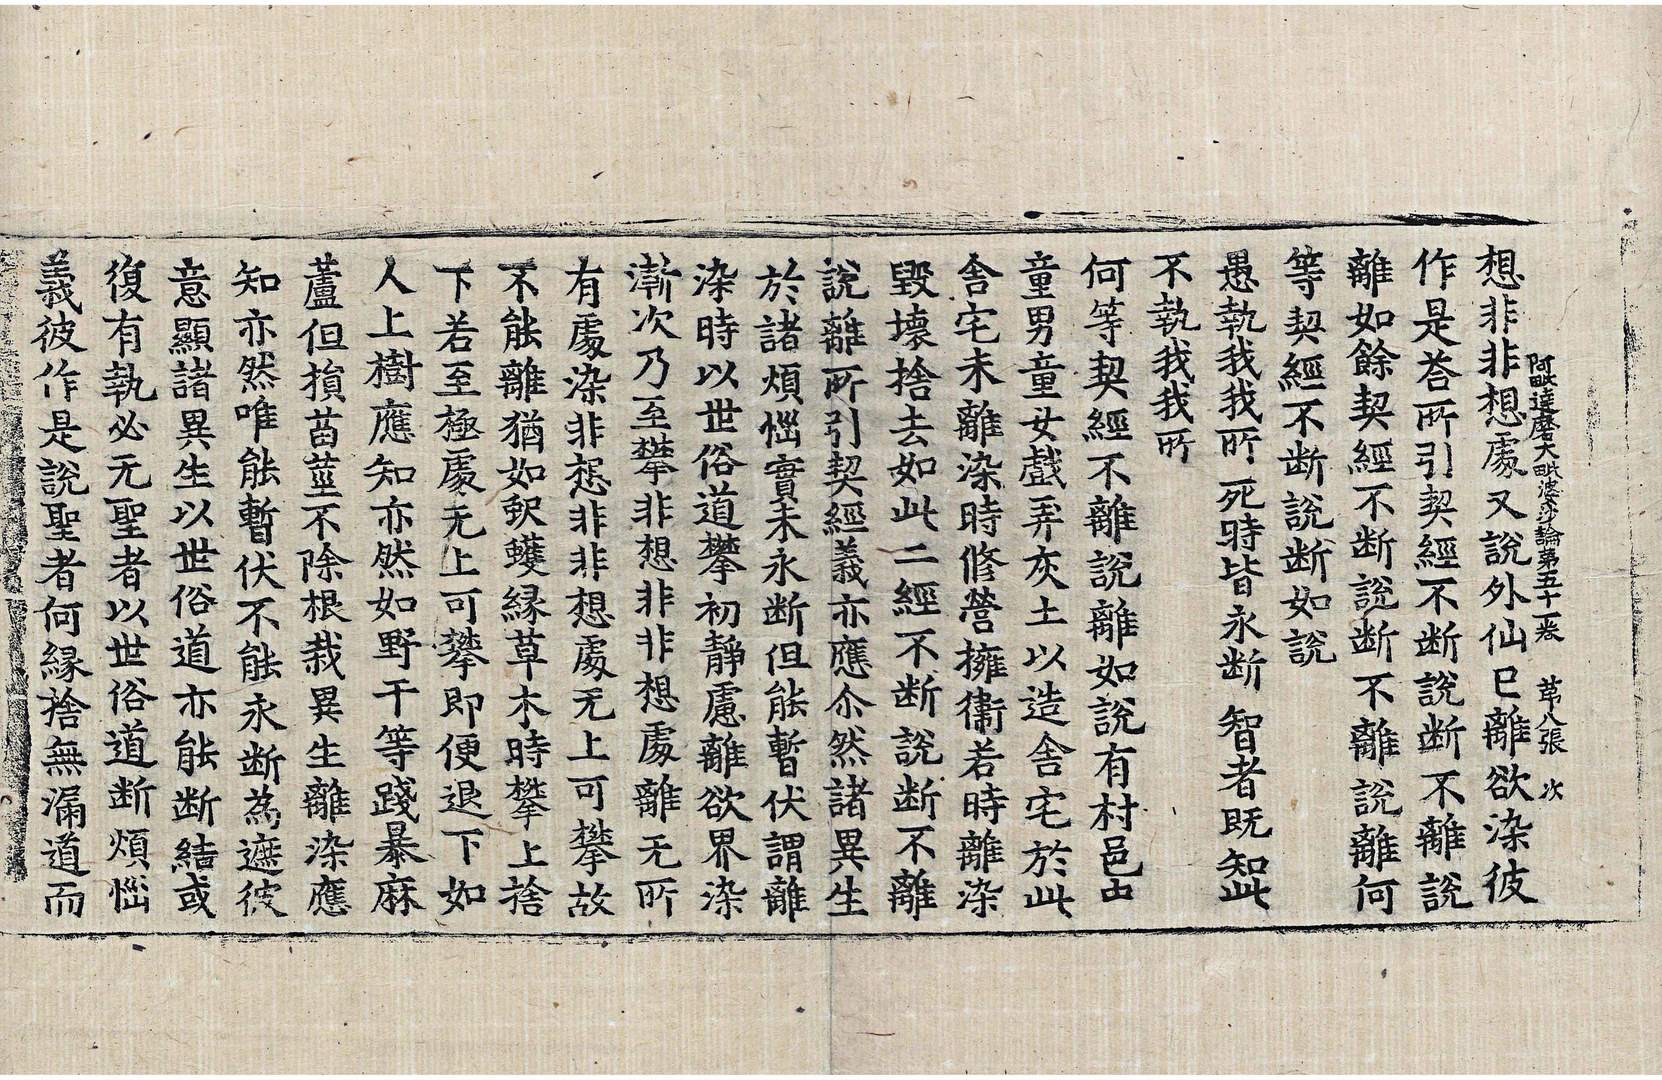 阿毗達磨大毗婆沙論第五十一卷 苐八張 次
想非非想處又說外仙已離欲染彼
作是荅所引契經不断說断不離說
離如餘契經不断說断不離說離何
等契經不断說断如說
愚執我我所 死時皆永断 智者既知此
不執我我所
何等契經不離說離如說有村邑中
童男童女戲弄灰土以造舍宅於此
舍宅未離染時修營擁衛若時離染
毀壞捨去如此二經不断說断不離
說離所引契經義亦應尒然諸異生
於諸煩惱實未永断但能暫伏謂離
染時以世俗道攀初靜慮離欲界染
漸次乃至攀非想非非想處離无所
有處染非想非非想處无上可攀故
不能離猶如蚇蠖緣草木時攀上捨
下若至極處无上可攀即便退下如
人上樹應知亦然如野干等踐暴麻
蘆但損苗莖不除根栽異生離染應
知亦然唯能暫伏不能永断為遮彼
意顯諸異生以世俗道亦能断結或
復有執必无聖者以世俗道断煩惱
義彼作是說聖者何緣捨無漏道而